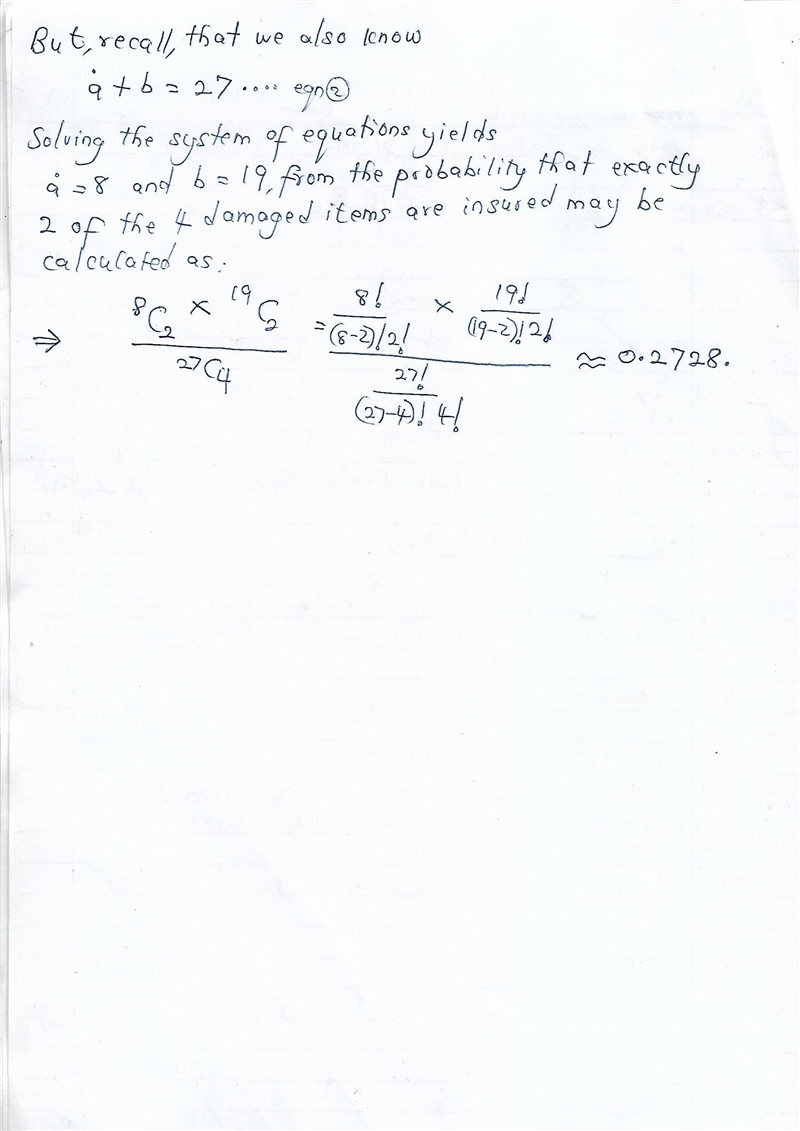 But, recall, that we also know
a + b = 27 .... eqn②
Solving the system of equations yields
a = 8 and b = 19, from the probability that exactly
2 of the 4 damaged items are insured may be
calculated as:
⇒ (⁸C₂ × ¹⁹C₂) / ²⁷C₄ = (8!/((8-2)!2!) × 19!/((19-2)!2!)) / (27!/((27-4)!4!)) ≈ 0.2728.